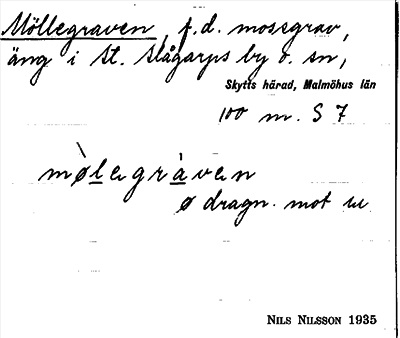 Möllegraven, f.d. mossgrav,
äng i St. Slågarps by o. sn,
Skytts härad, Malmöhus län
100 m. S 7
mø̀legràven
ø dragn. mot
NILS NILSSON 1935